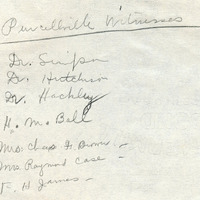 Purcellville Witnesses
Dr. Simpson
Dr. Hutchison
Dr. Hackley
H. M. Bell
Mrs. Chas F. Brown -
Mrs. Raymond Case -
F. H. James -